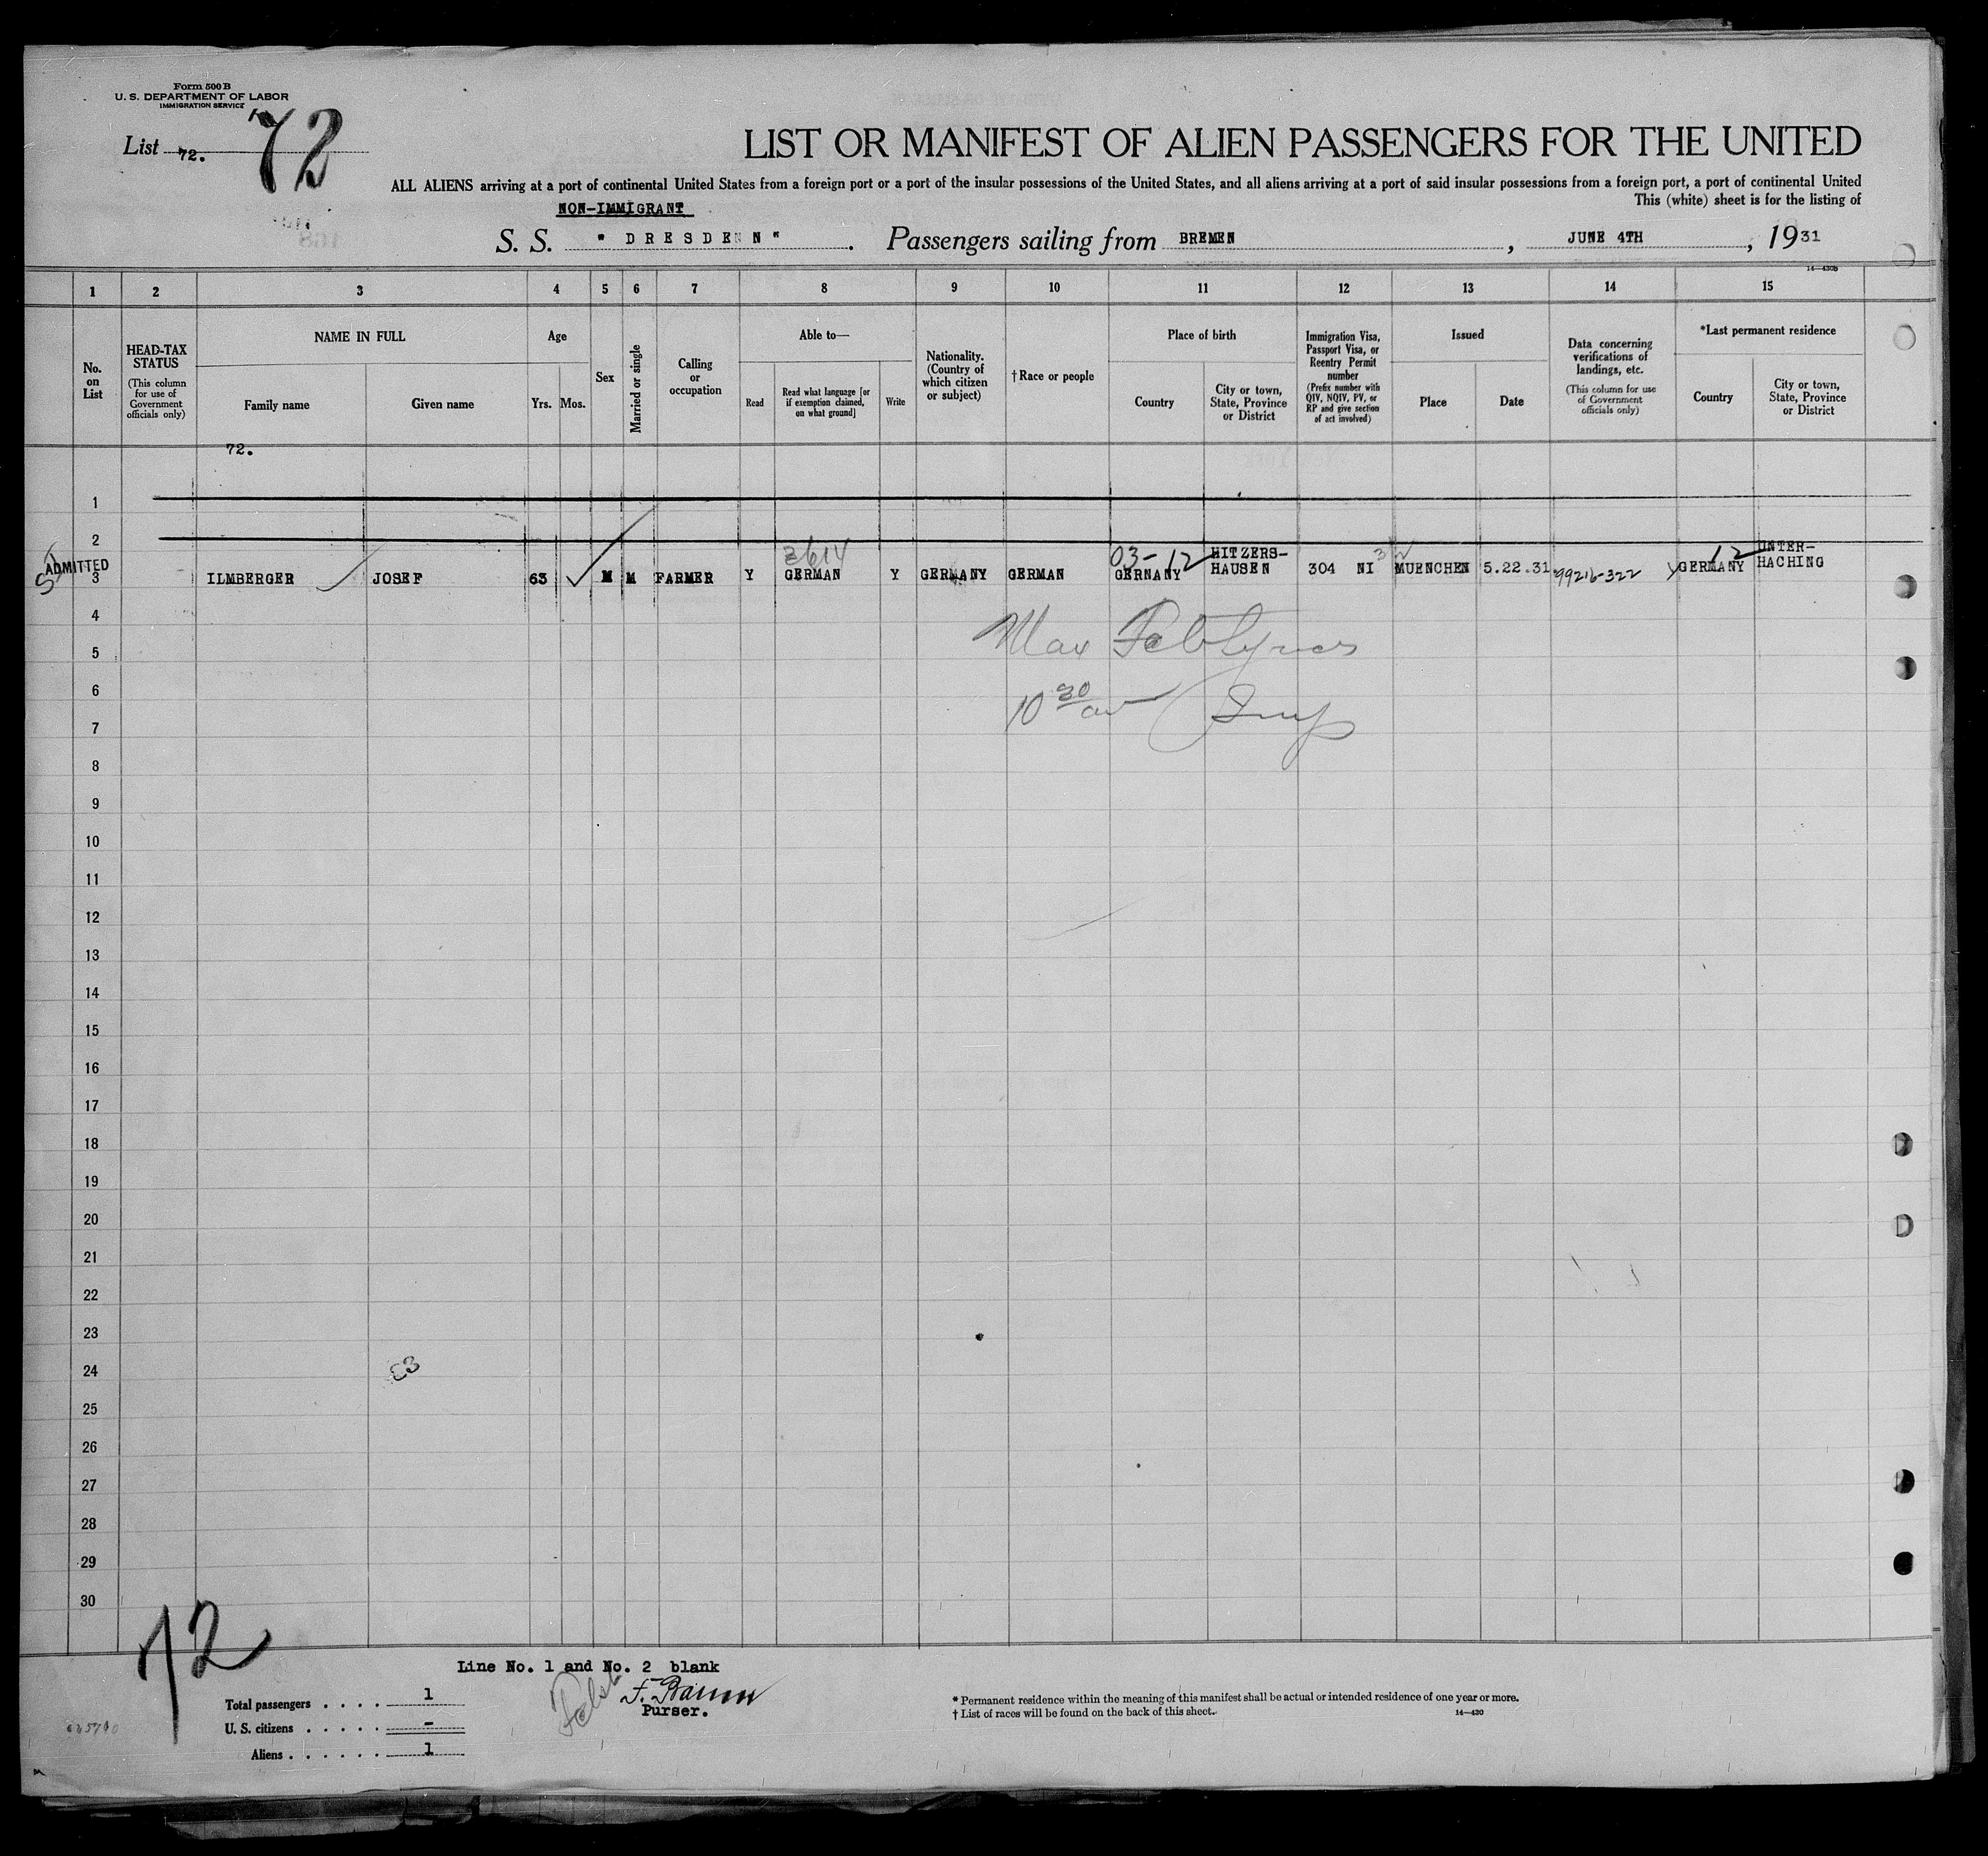 Form 500 B
U. S. DEPARTMENT OF LABOR
IMMIGRATION SERVICE
List 72. 72
LIST OR MANIFEST OF ALIEN PASSENGERS FOR THE UNITED
ALL ALIENS arriving at a port of continental United States from a foreign port or a port of the insular possessions of the United States, and all aliens arriving at a port of said insular possessions from a foreign port, a port of continental United
This (white) sheet is for the listing of
NON-IMMIGRANT
S. S. " DRESDEN ". Passengers sailing from BREMEN, JUNE 4TH, 1931
14—430B
1 2 3 4 5 6 7 8 9 10 11 12 13 14 15
No. on List
HEAD-TAX STATUS (This column for use of Government officials only)
NAME IN FULL
Family name
Given name
Age
Yrs.
Mos.
Sex
Married or single
Calling or occupation
Able to—
Read
Read what language [or if exemption claimed, on what ground]
Write
Nationality. (Country of which citizen or subject)
† Race or people
Place of birth
Country
City or town, State, Province or District
Immigration Visa, Passport Visa, or Reentry Permit number (Prefix number with QIV, NQIV, PV, or RP and give section of act involved)
Issued
Place
Date
Data concerning verifications of landings, etc. (This column for use of Government officials only)
*Last permanent residence
Country
City or town, State, Province or District
72.
1
2
ADMITTED
3614 03-12 12
3 ILMBERGER JOSEF 63 M M FARMER Y GERMAN Y GERMANY GERMAN GERNANY HITZERS-HAUSEN 304 NI MUENCHEN 5.22.31. 99216-322 GERMANY UNTER-HACHING
4
Max
5
6
10 30
7
8
9
10
11
12
13
14
15
16
17
18
19
20
21
22
23
24
25
26
27
28
29
30
72
Line No. 1 and No. 2 blank
Purser.
Total passengers . . . . 1
U. S. citizens . . . . . –
Aliens . . . . . . 1
* Permanent residence within the meaning of this manifest shall be actual or intended residence of one year or more.
† List of races will be found on the back of this sheet.
14—430